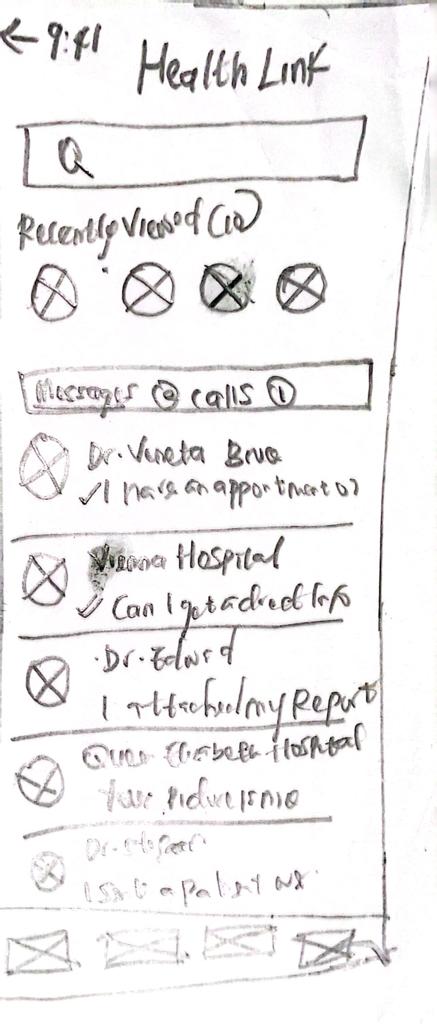 ← 9:41
Health Link
Recently Viewed (10)
Messages ② calls ①
Dr. Veneta Brue
✓ I have an appointment
Vienna Hospital
✓ Can I get a direct Info
Dr. Edward
I attached my Report
Queen Elizabeth Hospital
Dr.
a patient